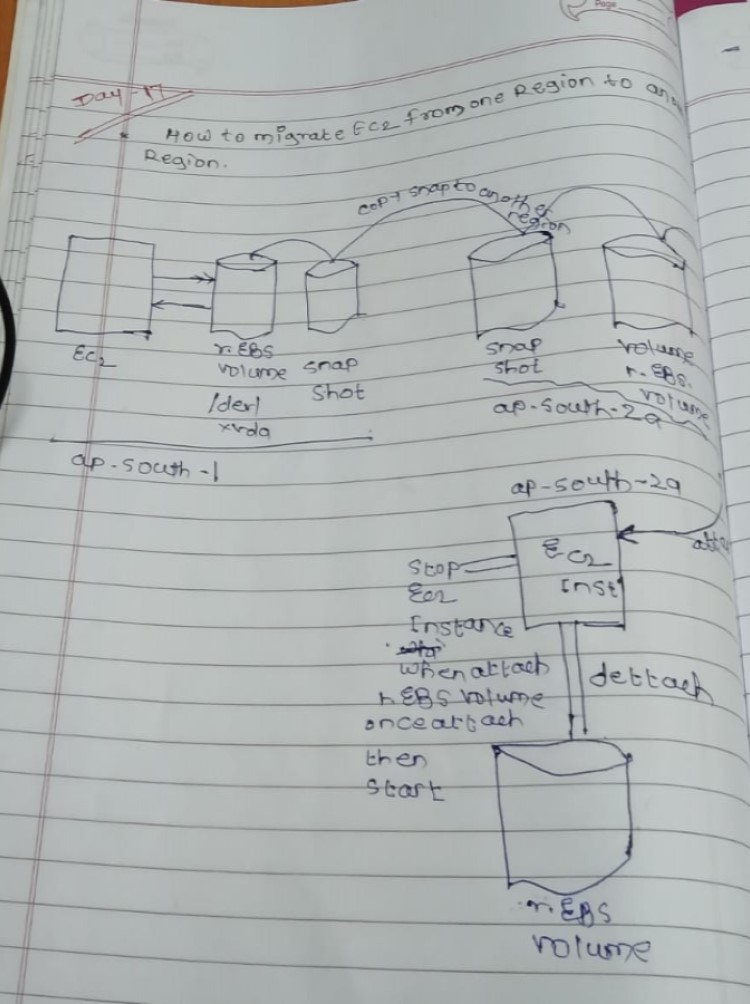 Page
Day-17
* How to migrate EC2 from one Region to
Region.
copy snap to another
region
EC2
r.EBS
volume
/dev/
xvda
snap
shot
snap
shot
volume
r.EBS.
volume
ap-south-1
ap-south-2a
ap-south-2a
EC2
Inst
Stop
Ec2
Instance
when attach
r EBS volume
once attach
then
Start
dettach
r.EBS
volume